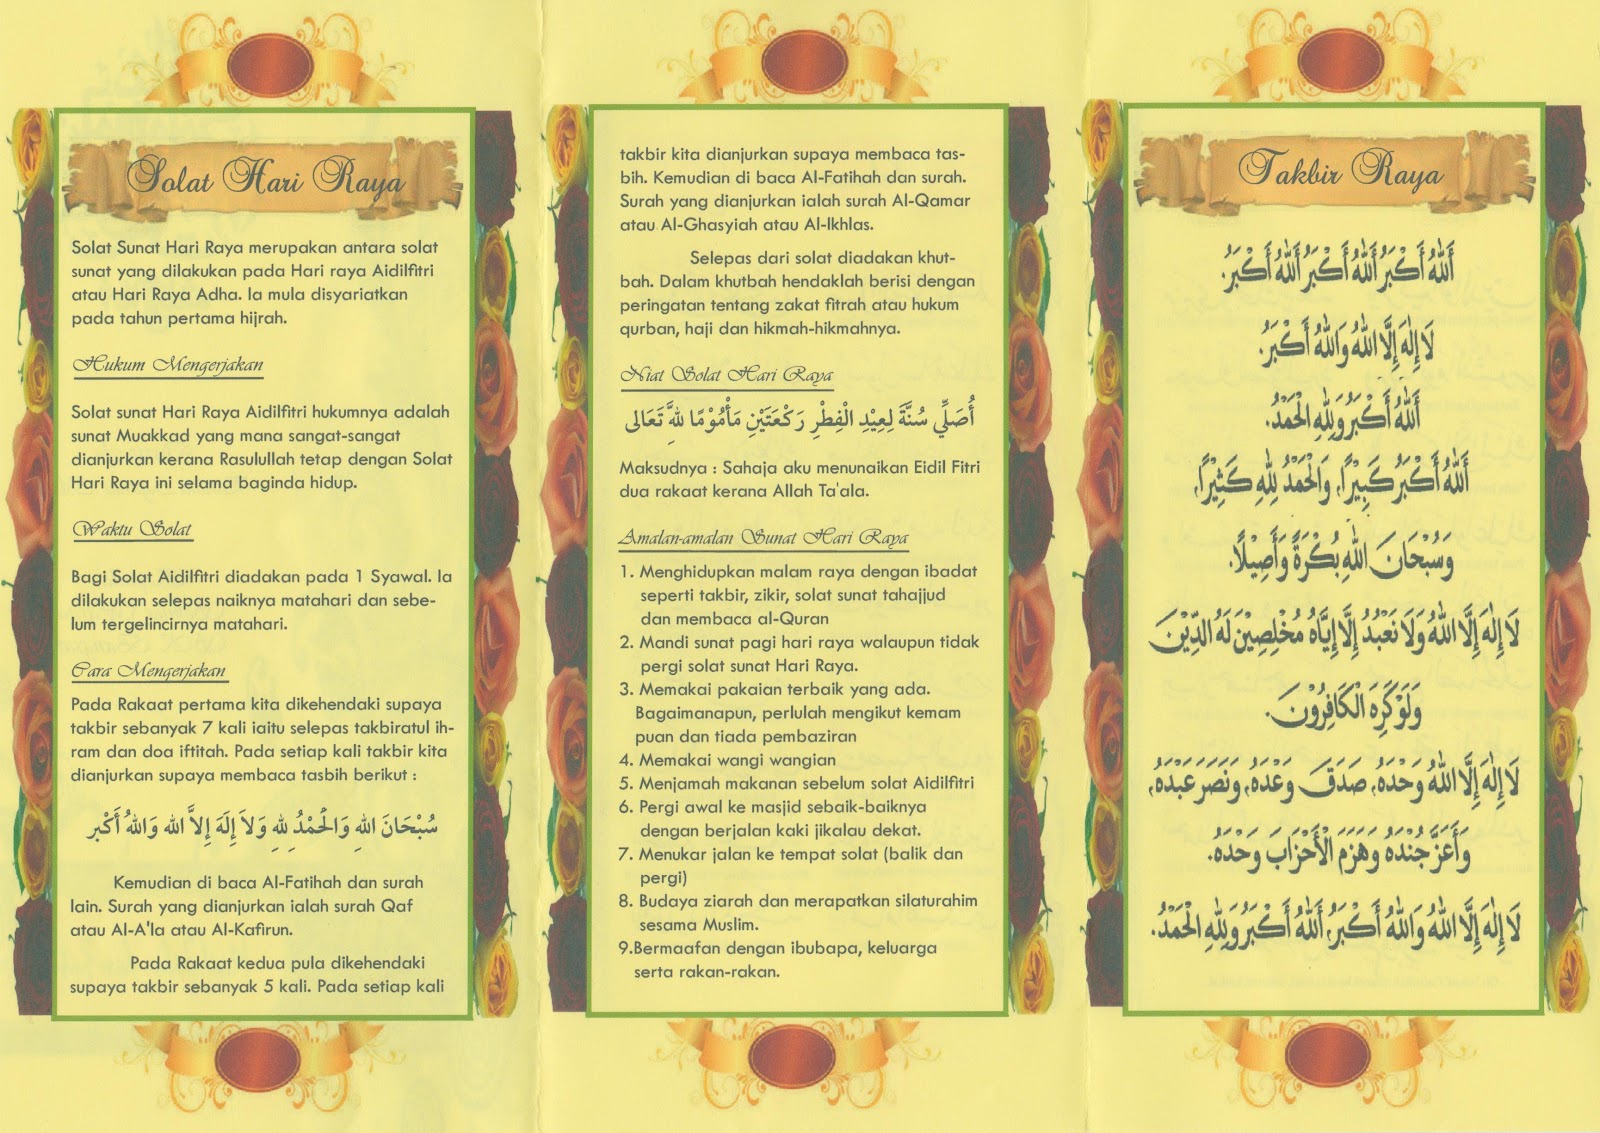 Solat Hari Raya
Solat Sunat Hari Raya merupakan antara solat
sunat yang dilakukan pada Hari raya Aidilfitri
atau Hari Raya Adha. Ia mula disyariatkan
pada tahun pertama hijrah.
Hukum Mengerjakan
Solat sunat Hari Raya Aidilfitri hukumnya adalah
sunat Muakkad yang mana sangat-sangat
dianjurkan kerana Rasulullah tetap dengan Solat
Hari Raya ini selama baginda hidup.
Waktu Solat
Bagi Solat Aidilfitri diadakan pada 1 Syawal. Ia
dilakukan selepas naiknya matahari dan sebe-
lum tergelincirnya matahari.
Cara Mengerjakan
Pada Rakaat pertama kita dikehendaki supaya
takbir sebanyak 7 kali iaitu selepas takbiratul ih-
ram dan doa iftitah. Pada setiap kali takbir kita
dianjurkan supaya membaca tasbih berikut :
سُبْحَانَ اللهِ وَالْحَمْدُ لِلهِ وَلاَ إِلَهَ إِلاَّ الله وَاللهُ أَكْبَر
Kemudian di baca Al-Fatihah dan surah
lain. Surah yang dianjurkan ialah surah Qaf
atau Al-A'la atau Al-Kafirun.
Pada Rakaat kedua pula dikehendaki
supaya takbir sebanyak 5 kali. Pada setiap kali
takbir kita dianjurkan supaya membaca tas-
bih. Kemudian di baca Al-Fatihah dan surah.
Surah yang dianjurkan ialah surah Al-Qamar
atau Al-Ghasyiah atau Al-Ikhlas.
Selepas dari solat diadakan khut-
bah. Dalam khutbah hendaklah berisi dengan
peringatan tentang zakat fitrah atau hukum
qurban, haji dan hikmah-hikmahnya.
Niat Solat Hari Raya
أُصَلِّي سُنَّةَ لِعِيْدِ الْفِطْرِ رَكْعَتَيْنِ مَأْمُوْمًا للهِ تَعَالى
Maksudnya : Sahaja aku menunaikan Eidil Fitri
dua rakaat kerana Allah Ta'ala.
Amalan-amalan Sunat Hari Raya
1. Menghidupkan malam raya dengan ibadat
seperti takbir, zikir, solat sunat tahajjud
dan membaca al-Quran
2. Mandi sunat pagi hari raya walaupun tidak
pergi solat sunat Hari Raya.
3. Memakai pakaian terbaik yang ada.
Bagaimanapun, perlulah mengikut kemam
puan dan tiada pembaziran
4. Memakai wangi wangian
5. Menjamah makanan sebelum solat Aidilfitri
6. Pergi awal ke masjid sebaik-baiknya
dengan berjalan kaki jikalau dekat.
7. Menukar jalan ke tempat solat (balik dan
pergi)
8. Budaya ziarah dan merapatkan silaturahim
sesama Muslim.
9.Bermaafan dengan ibubapa, keluarga
serta rakan-rakan.
Takbir Raya
اَللهُ أَكْبَرُ اَللهُ أَكْبَرُ اَللهُ أَكْبَرُ.
لَا إِلٰهَ إِلَّا اللهُ وَاللهُ أَكْبَرُ.
اَللهُ أَكْبَرُ وَلِلهِ الْحَمْدُ.
اَللهُ أَكْبَرُ كَبِيْرًا، وَالْحَمْدُ لِلهِ كَثِيْرًا،
وَسُبْحَانَ اللهِ بُكْرَةً وَأَصِيْلًا.
لَا إِلٰهَ إِلَّا اللهُ وَلَا نَعْبُدُ إِلَّا إِيَّاهُ مُخْلِصِيْنَ لَهُ الدِّيْنَ
وَلَوْ كَرِهَ الْكَافِرُوْنَ.
لَا إِلٰهَ إِلَّا اللهُ وَحْدَهُ، صَدَقَ وَعْدَهُ، وَنَصَرَ عَبْدَهُ،
وَأَعَزَّ جُنْدَهُ وَهَزَمَ الْأَحْزَابَ وَحْدَهُ.
لَا إِلٰهَ إِلَّا اللهُ وَاللهُ أَكْبَرُ، اَللهُ أَكْبَرُ وَلِلهِ الْحَمْدُ.